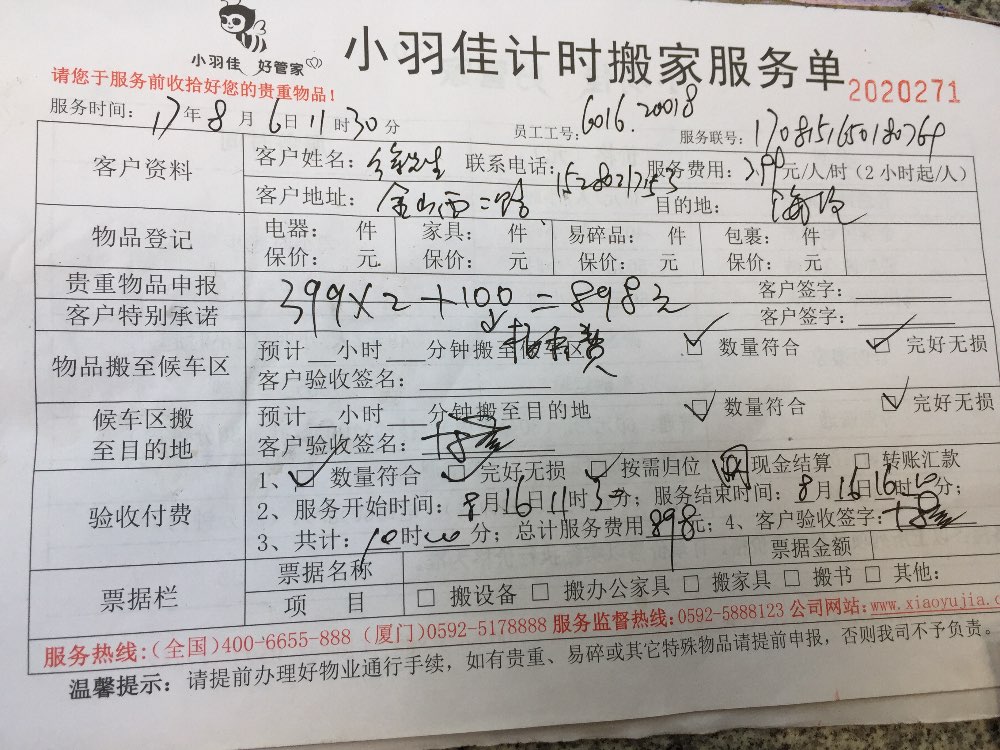 小羽佳 好管家
小羽佳计时搬家服务单
2020271
请您于服务前收拾好您的贵重物品!
服务时间: 17年8月6日11时30分 员工工号: 6016.20018 服务联号: 170815165018076
客户资料
客户姓名: 徐先生 联系电话: 服务费用: 399元/人/时(2小时起/人)
客户地址: 金山西二路 目的地: 海沧
物品登记
电器: 件 家具: 件 易碎品: 件 包裹: 件
保价: 元 保价: 元 保价: 元 保价: 元
贵重物品申报 客户签字:
客户特别承诺 399X2+100=898元 客户签字:
搬运费
物品搬至候车区
预计 小时 分钟搬至候车区 数量符合 完好无损
客户验收签名:
候车区搬至目的地
预计 小时 分钟搬至目的地 数量符合 完好无损
客户验收签名:
验收付费
1、 数量符合 完好无损 按需归位 现金结算 转账汇款
2、服务开始时间: 8月16日11时30分; 服务结束时间: 8月16日16时 分;
3、共计: 10时00分; 总计服务费用898元; 4、客户验收签字:
票据栏
票据名称 票据金额
项 目 搬设备 搬办公家具 搬家具 搬书 其他:
服务热线:(全国)400-6655-888 (厦门)0592-5178888 服务监督热线:0592-5888123 公司网站:www.xiaoyujia.c
温馨提示: 请提前办理好物业通行手续,如有贵重、易碎或其它特殊物品请提前申报,否则我司不予负责。